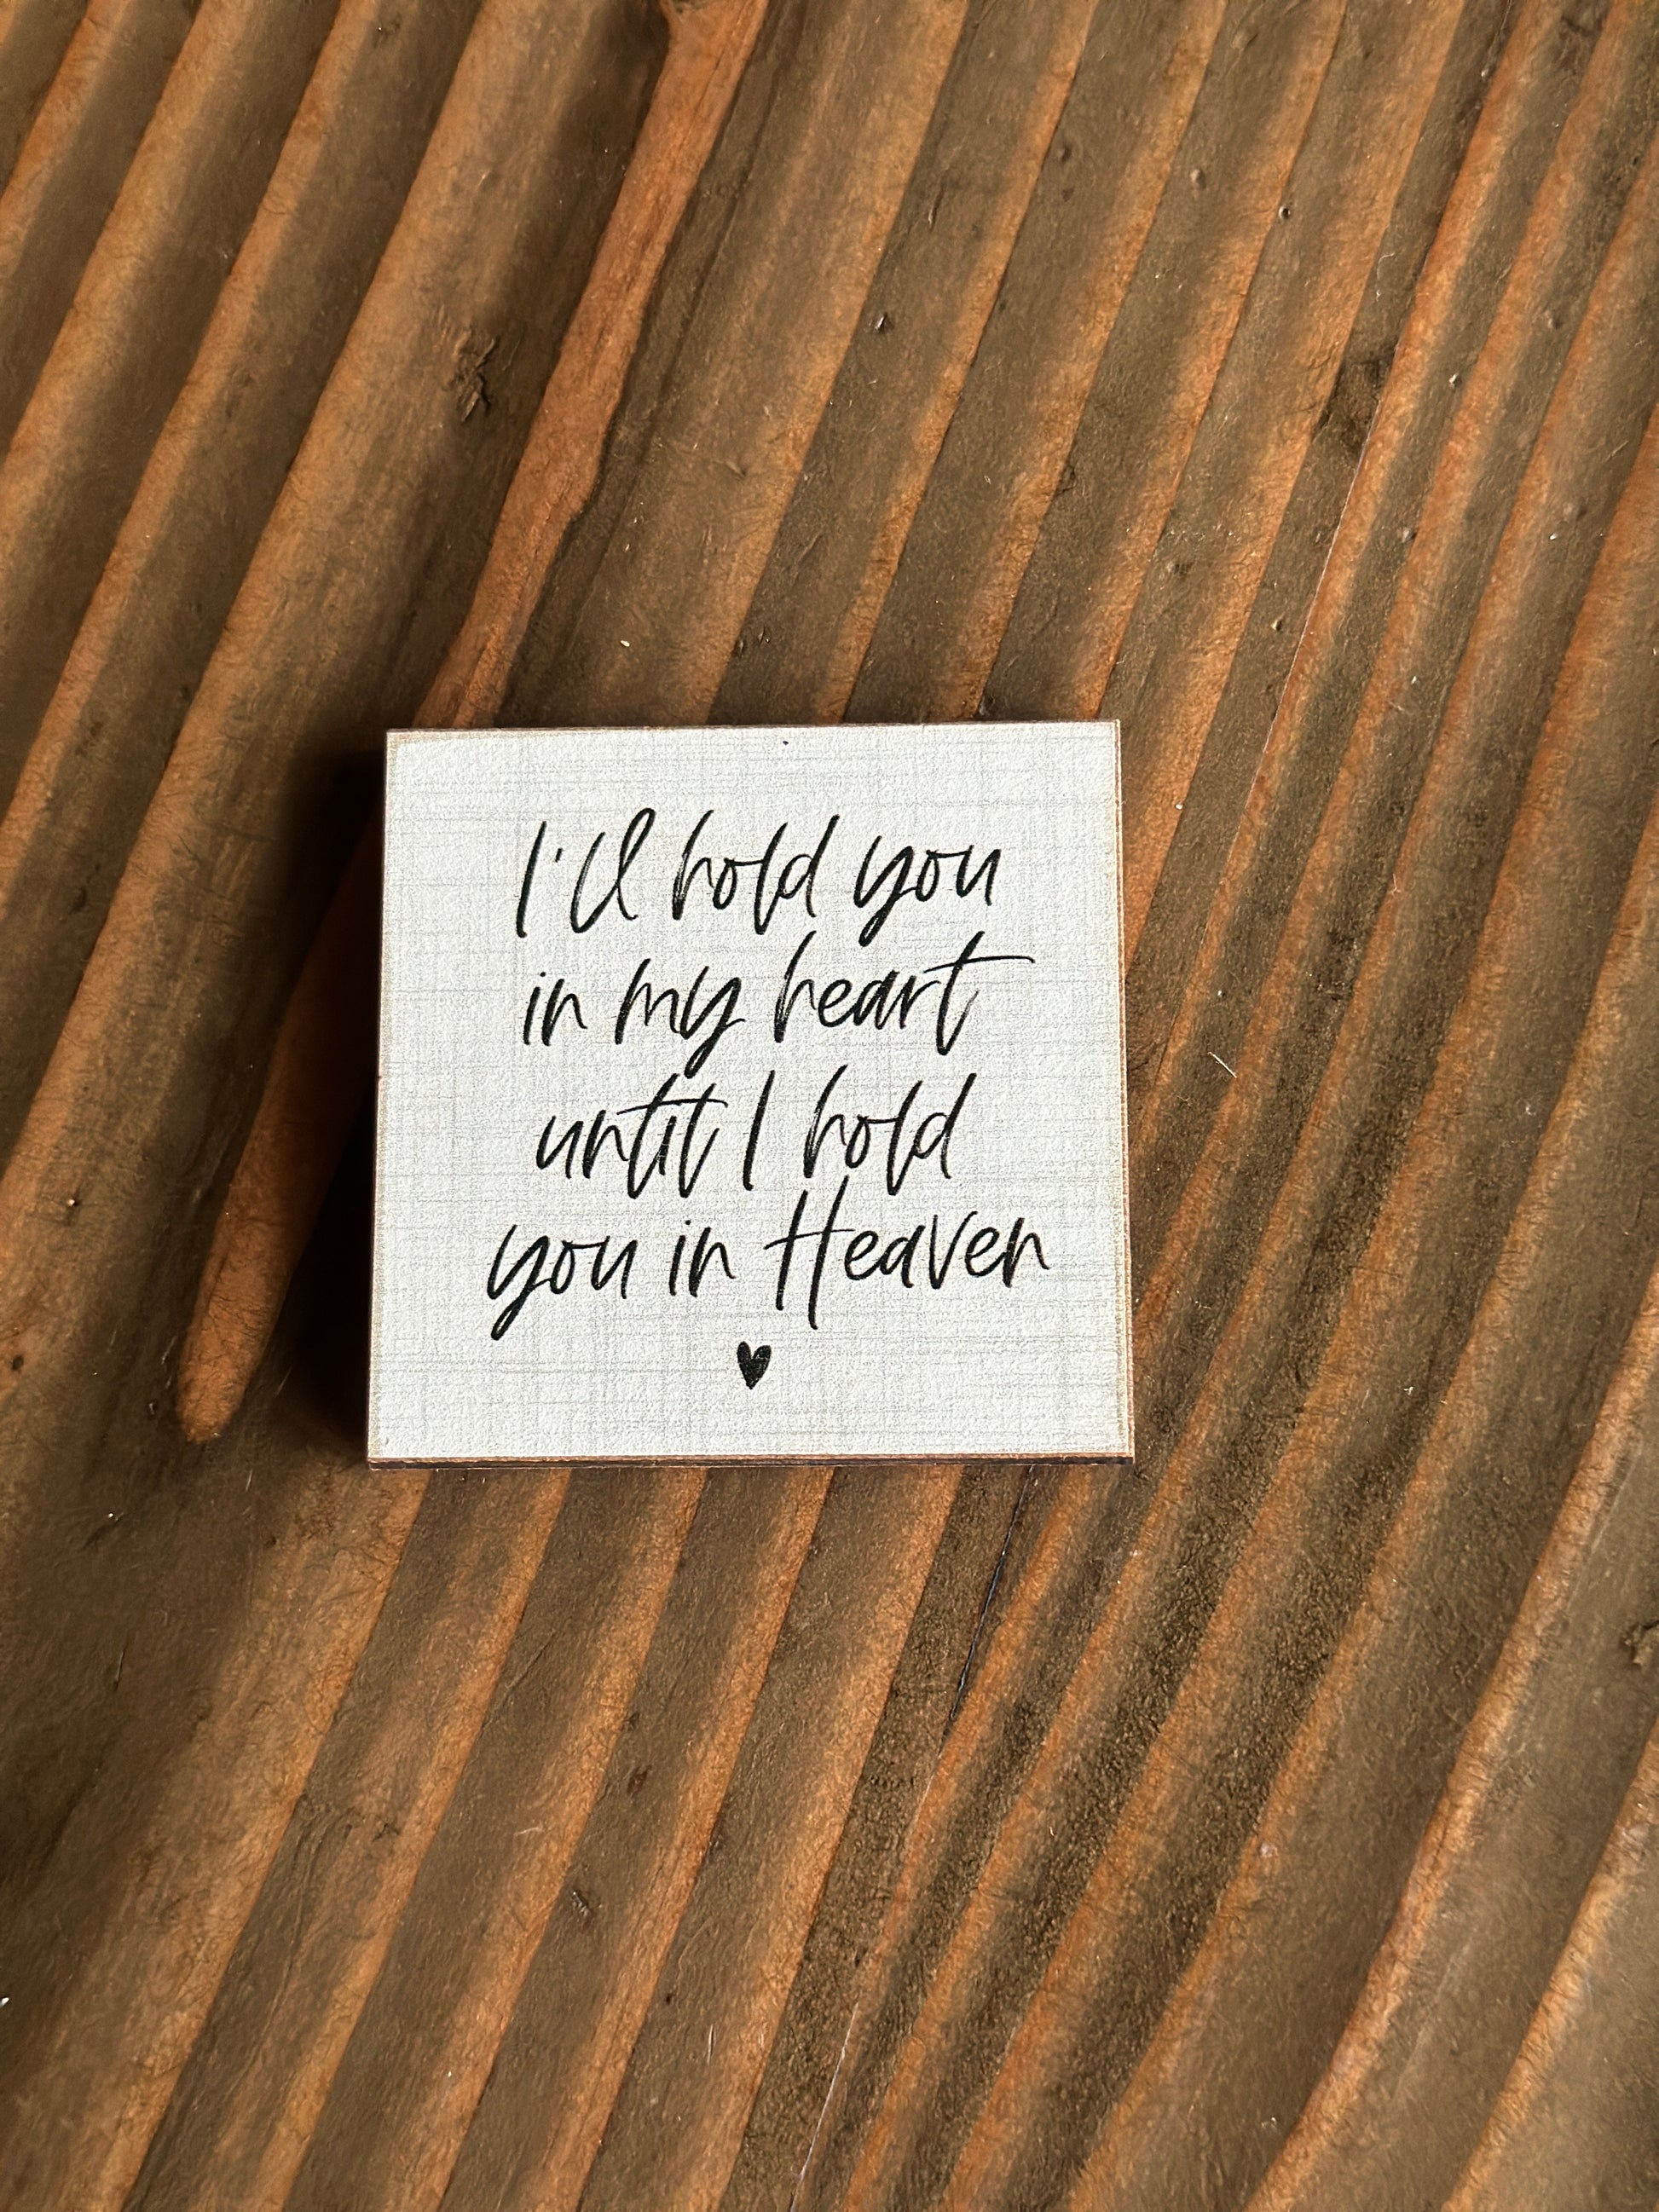 I'll hold you
in my heart
until I hold
you in Heaven